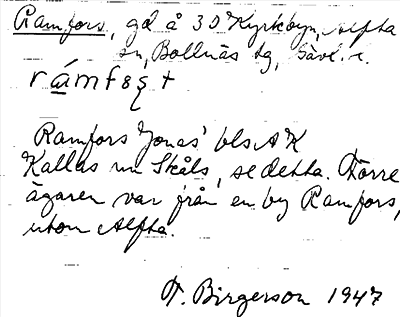 Ramfors, gd å 30 Kyrkbyn, Alfta
sn, Bollnäs tg, Gävl. l.
rámfsst
Ramfors Jonas' bls A K
Kallas nu Skåls, se detta. Förre
ägaren var från en by Ramfors,
utom Alfta.
F. Birgerson 1947